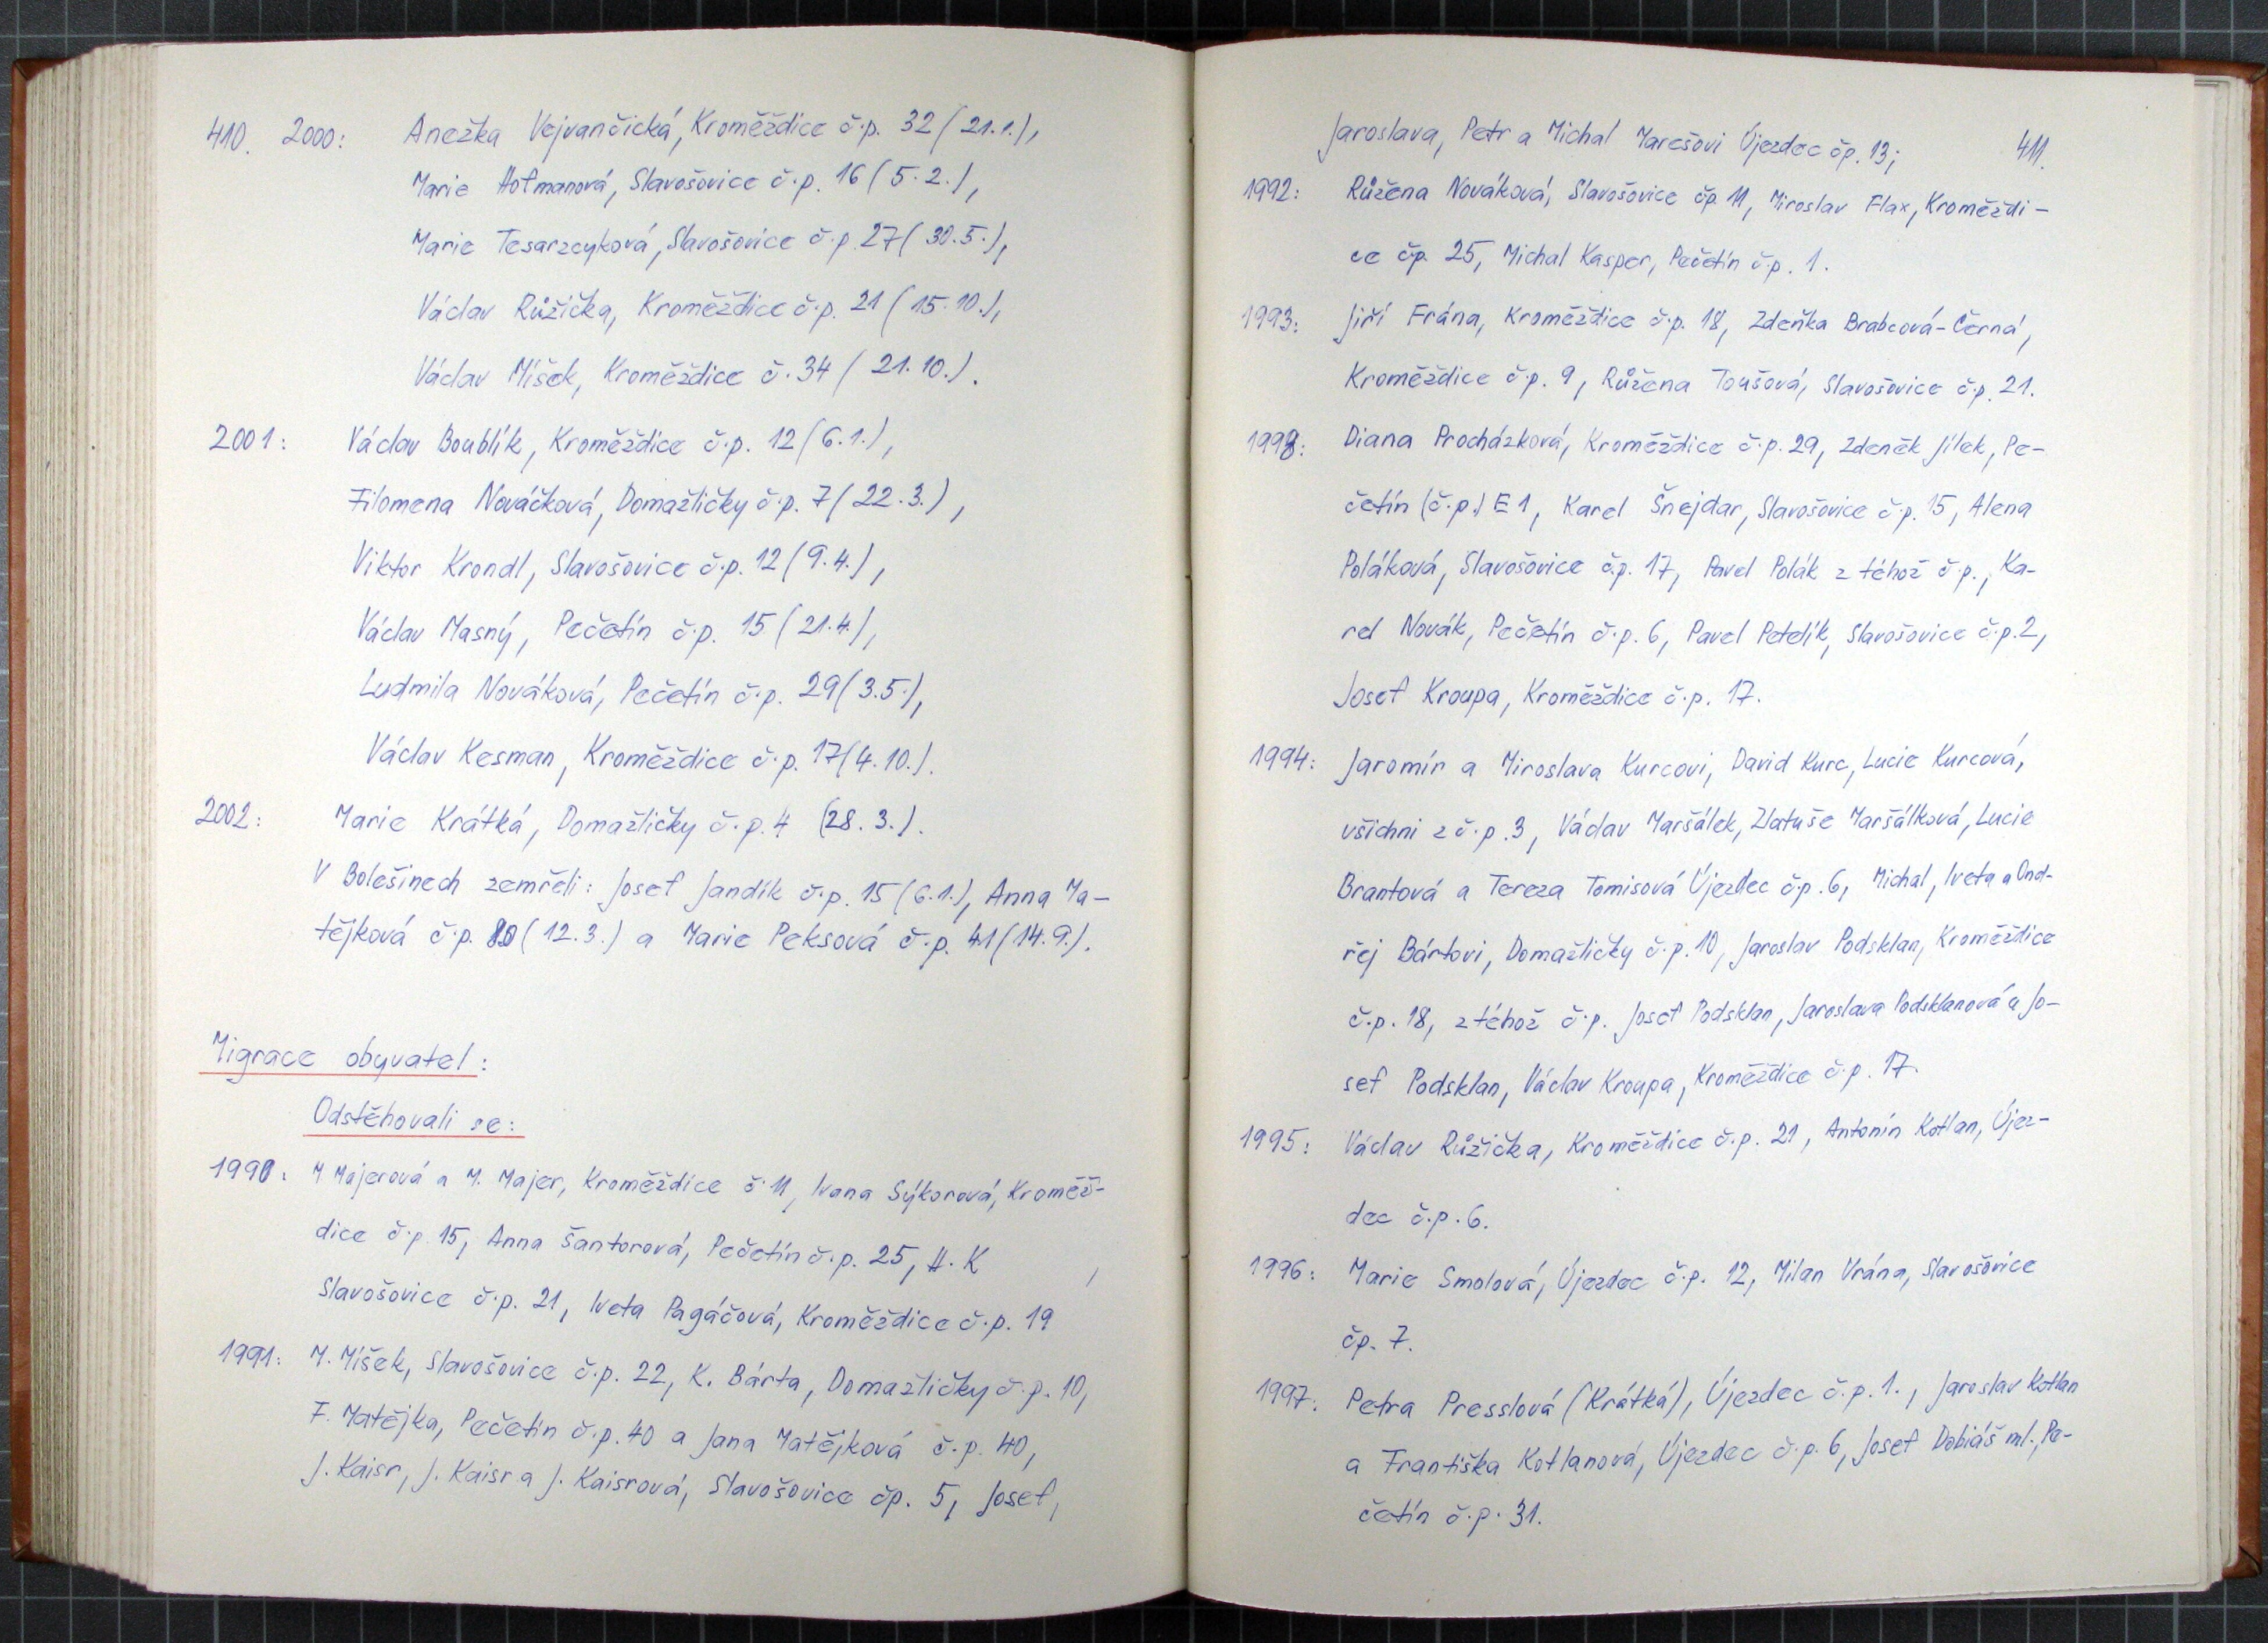 410. 2000: Anežka Vejvančická, Kroměždice č.p. 32 (21.1.),
Marie Hofmanová, Slavošovice č.p. 16 (5.2.),
Marie Tesarzcyková, Slavošovice č.p. 27 (30.5.),
Václav Růžička, Kroměždice č.p. 21 (15.10.),
Václav Míšek, Kroměždice č. 34 (21.10.).
2001: Václav Boublík, Kroměždice č.p. 12 (6.1.),
Filomena Nováčková, Domažličky č.p. 7 (22.3.),
Viktor Krondl, Slavošovice č.p. 12 (9.4.),
Václav Masný, Pečetín č.p. 15 (21.4.),
Ludmila Nováková, Pečetín č.p. 29 (3.5.),
Václav Kesman, Kroměždice č.p. 17 (4.10.).
2002: Marie Krátká, Domažličky č.p. 4 (28.3.).
V Bolešinech zemřeli: Josef Jandík č.p. 15 (6.1.), Anna Ma-
tějková č.p. (12.3.) a Marie Peksová č.p. 41 (14.9.).
Migrace obyvatel:
Odstěhovali se:
1990: M Majerová a M. Majer, Kroměždice č. 11, Ivana Sýkorová, Kroměž-
dice č.p. 15, Anna Šantorová, Pečetín č.p. 25, H. K ,
Slavošovice č.p. 21, Iveta Pagáčová, Kroměždice č.p. 19
1991: M. Míšek, Slavošovice č.p. 22, K. Bárta, Domažličky č.p. 10,
F. Matějka, Pečetín č.p. 40 a Jana Matějková č.p. 40,
J. Kaisr, J. Kaisr a J. Kaisrová, Slavošovice čp. 5, Josef,
Jaroslava, Petr a Michal Marešovi Újezdec čp. 13; 411.
1992: Růžena Nováková, Slavošovice čp. 11, Miroslav Flax, Kroměždi-
ce čp. 25, Michal Kasper, Pečetín č.p. 1.
1993: Jiří Frána, Kroměždice č.p. 18, Zdeňka Brabcová-Černá,
Kroměždice č.p. 9, Růžena Toušová, Slavošovice č.p. 21.
1993: Diana Procházková, Kroměždice č.p. 29, Zdeněk Jílek, Pe-
četín (č.p.) E 1, Karel Šnejdar, Slavošovice č.p. 15, Alena
Poláková, Slavošovice č.p. 17, Pavel Polák z téhož č.p., Ka-
rel Novák, Pečetín č.p. 6, Pavel Petelík, Slavošovice č.p. 2,
Josef Kroupa, Kroměždice č.p. 17.
1994: Jaromír a Miroslava Kurcovi, David Kurc, Lucie Kurcová,
všichni z č.p. 3, Václav Maršálek, Zlatuše Maršálková, Lucie
Brantová a Tereza Tomisová Újezdec č.p. 6, Michal, Iveta a Ond-
řej Bártovi, Domažličky č.p. 10, Jaroslav Podsklan, Kroměždice
č.p. 18, z téhož č.p. Josef Podsklan, Jaroslava Podsklanová a Jo-
sef Podsklan, Václav Kroupa, Kroměždice č.p. 17.
1995: Václav Růžička, Kroměždice č.p. 21, Antonín Kotlan, Újez-
dec č.p. 6.
1996: Marie Smolová, Újezdec č.p. 12, Milan Vrána, Slavošovice
čp. 7.
1997: Petra Presslová (Krátká), Újezdec č.p. 1., Jaroslav Kotlan
a Františka Kotlanová, Újezdec č.p. 6, Josef Dobiáš ml., Pe-
četín č.p. 31.